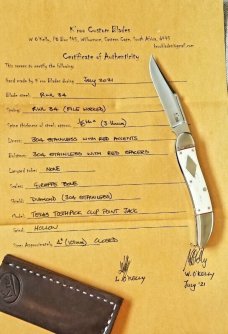 K'roo Custom Blades
W O'Kelly, PO Box 445, Williamson, Eastern Cape, South Africa
Certificate of Authenticity
This serves to certify the following:
Hand made by K'roo Blades during July 2021
Blade steel: RWL 34
Spring: RWL 34 (FILE WORKED)
Spine thickness of steel approx:
Liners: 304 STAINLESS WITH RED ACCENTS
Bolsters: 304 STAINLESS WITH RED SPACERS
Lanyard tube: NONE
Scales: GIRAFFE BONE
Shield: DIAMOND (304 STAINLESS)
Model: TEXAS TOOTHPICK CLIP POINT JACK
Grind: HOLLOW
Size: Approximately 4" (101mm) CLOSED
L. O'KELLY
W. O'KELLY
July '21